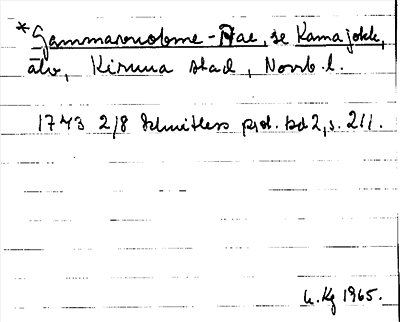 *Gammavuobme-Aae, se Kamajokk,
älv, Kiruna stad, Norrb. l.
1743 2/8 Schnitlers prot. bd 2, s. 211.
h. Kg 1965.